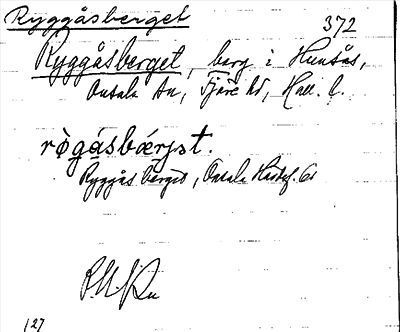 Ryggåsberget
372
Ryggåsberget, berg i Hunsås,
Onsala sn, Fjäre hd, Hall. l.
rògásbǽrjət.
Ryggås berget, Onsala
127